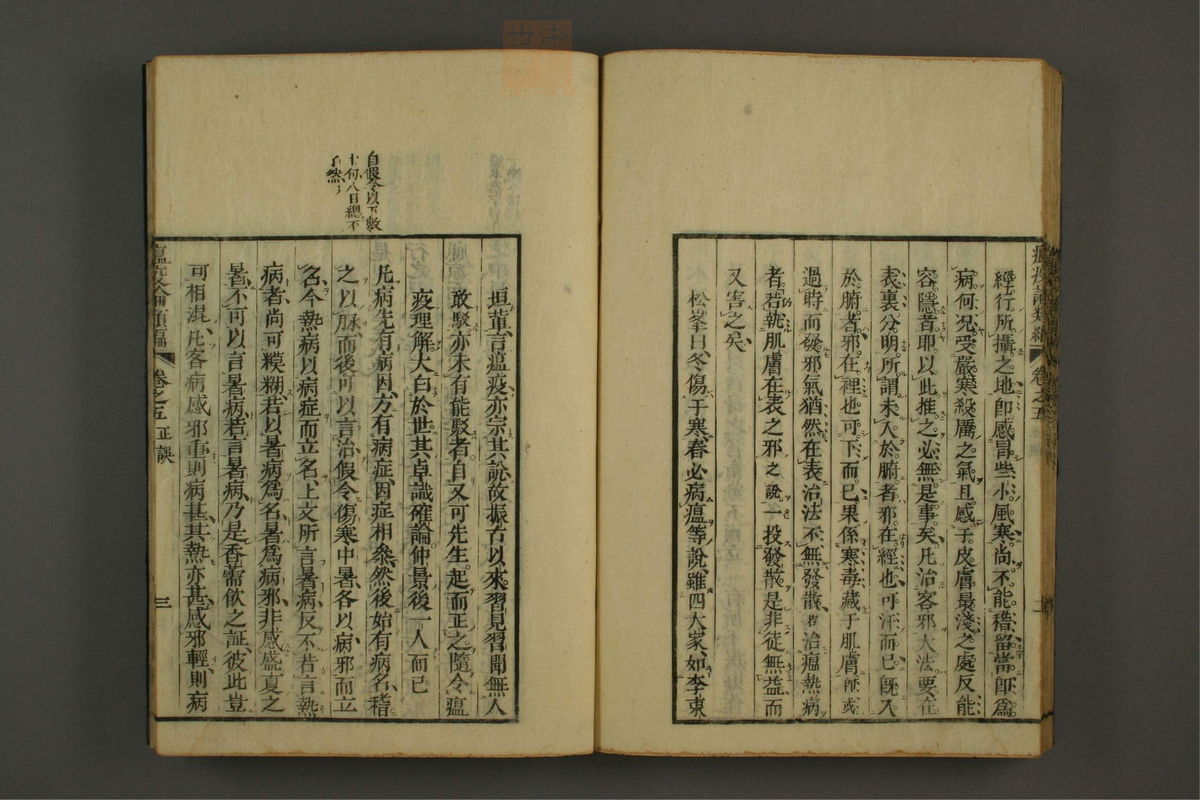 經行所攝之地卽感冒些小風寒尚不能稽留當卽爲
病何况受嚴寒殺厲之氣且感于皮膚最淺之處反能
容隱者耶以此推之必無是事矣凡治客邪大法要在
表裏分明所謂未入於腑者邪在經也可汗而已旣入
於腑者邪在裡也可下而已果係寒毒藏于肌膚卽或
過時而發邪氣猶然在表治法不無發散徃治瘟熱病
者若執肌膚在表之邪之說一投發散是非徒無益而
又害之矣
松峯曰冬傷于寒春必病瘟等說雖四大家如李東
瘟疫論類編
卷之五
二
垣軰言瘟疫亦宗其說故振古以來習見習聞無人
敢駁亦未有能駁者自又可先生起而正之隨令瘟
疫理解大白於世其卓識確論仲景後一人而已
凡病先有病因方有病症因症相參然後始有病名稽
之以脉而後可以言治假令傷寒中暑各以病邪而立
名今熱病以病症而立名上文所言暑病反不若言熱
病者尚可糢糊若以暑病爲名暑爲病邪非感盛夏之
暑不可以言暑病若言暑病乃是香薷飲之証彼此豈
可相混凡客病感邪重則病甚其熱亦甚感邪輕則病
瘟疫論類編
卷之五
正誤
三
自假令以下數
十句八目總不
了然